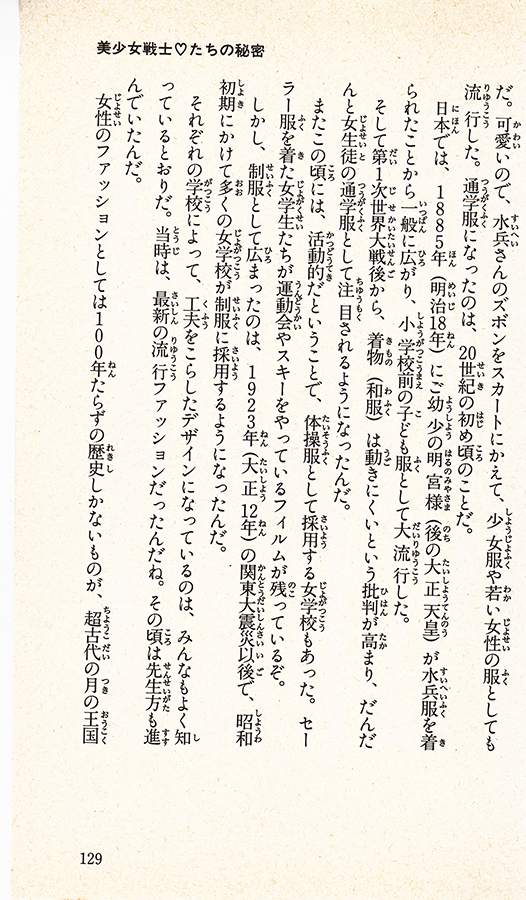 美少女戦士♡たちの秘密
だ。可愛いので、水兵さんのズボンをスカートにかえて、少女服や若い女性の服としても
流行した。通学服になったのは、20世紀の初め頃のことだ。
日本では、1885年（明治18年）にご幼少の明宮様（後の大正天皇）が水兵服を着
られたことから一般に広がり、小学校前の子ども服として大流行した。
そして第1次世界大戦後から、着物（和服）は動きにくいという批判が高まり、だんだ
んと女生徒の通学服として注目されるようになったんだ。
またこの頃には、活動的だということで、体操服として採用する女学校もあった。セー
ラー服を着た女学生たちが運動会やスキーをやっているフィルムが残っているぞ。
しかし、制服として広まったのは、1923年（大正12年）の関東大震災以後で、昭和
初期にかけて多くの女学校が制服に採用するようになったんだ。
それぞれの学校によって、工夫をこらしたデザインになっているのは、みんなもよく知
っているとおりだ。当時は、最新の流行ファッションだったんだね。その頃は先生方も進
んでいたんだ。
女性のファッションとしては100年たらずの歴史しかないものが、超古代の月の王国
129